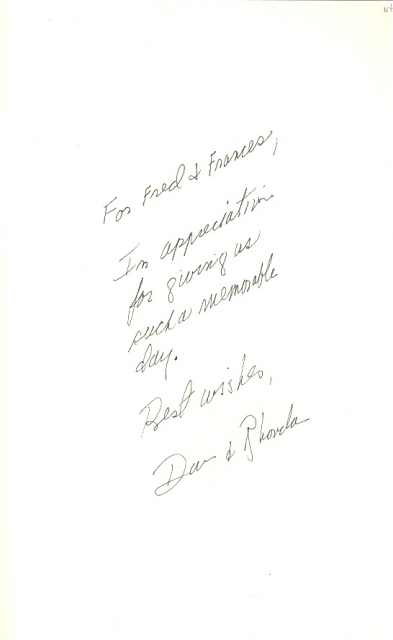 For Fred & Frances,
In appreciation
for giving us
such a memorable
day.
Best wishes,
Dan & Rhonda